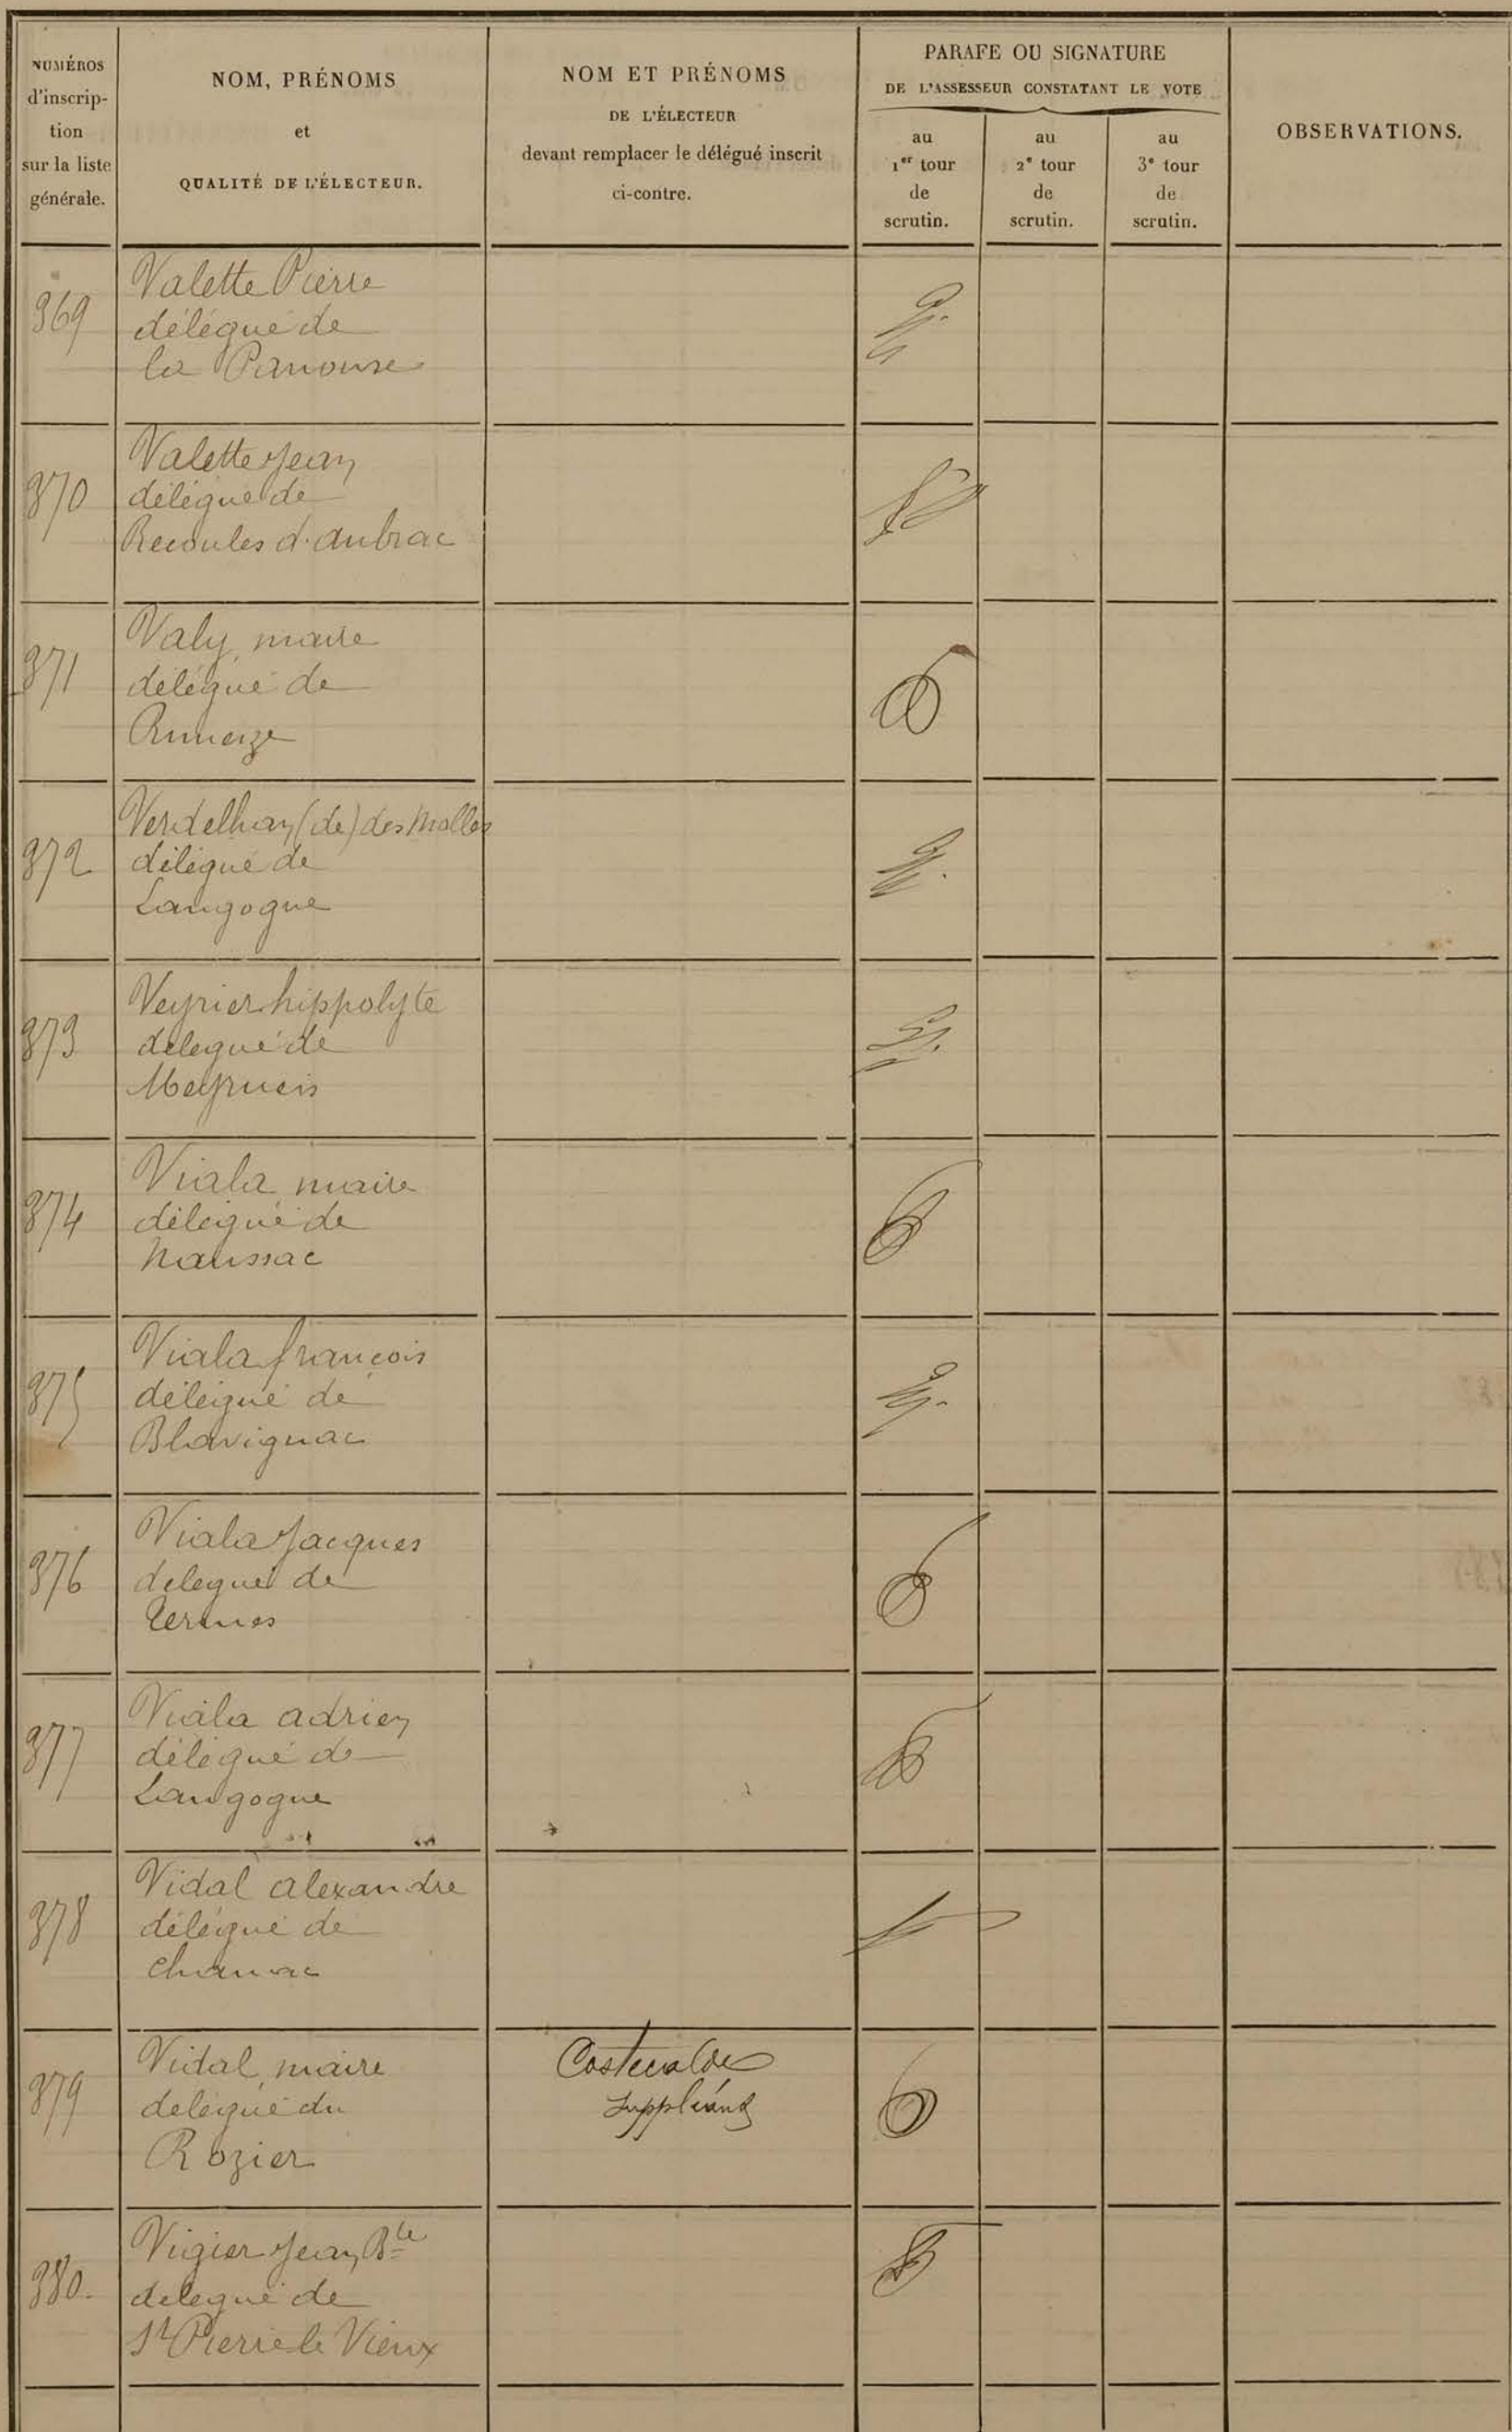 NUMÉROS
d'inscrip-
tion
sur la liste
générale.
NOM, PRÉNOMS
et
QUALITÉ DE L'ÉLECTEUR.
NOM ET PRÉNOMS
DE L'ÉLECTEUR
devant remplacer le délégué inscrit
ci-contre.
PARAFE OU SIGNATURE
DE L'ASSESSEUR CONSTATANT LE VOTE
au
1er tour
de
scrutin.
au
2e tour
de
scrutin.
au
3e tour
de
scrutin.
OBSERVATIONS.
369
Valette Pierre
délégué de
la Panouse
370
Valette Jean
délégué de
Recoules d'aubrac
371
Valy, maire
délégué de
Rimeize
372
Verdelhan (de) des Molles
délégué de
Langogne
373
Veyrier hippolyte
délegué de
Meyrueis
374
Viala, maire
délégué de
Naussac
375
Viala françois
délégué de
Blavignac
376
Viala Jacques
delegué de
Termes
377
Viala adrien
délégué de
Langogne
378
Vidal alexandre
délégué de
Chanac
379
Vidal, maire
delégué du
Rozier
Costecalde
Suppléant
380.
Vigier Jean Bte
delegué de
St Pierre le Vieux